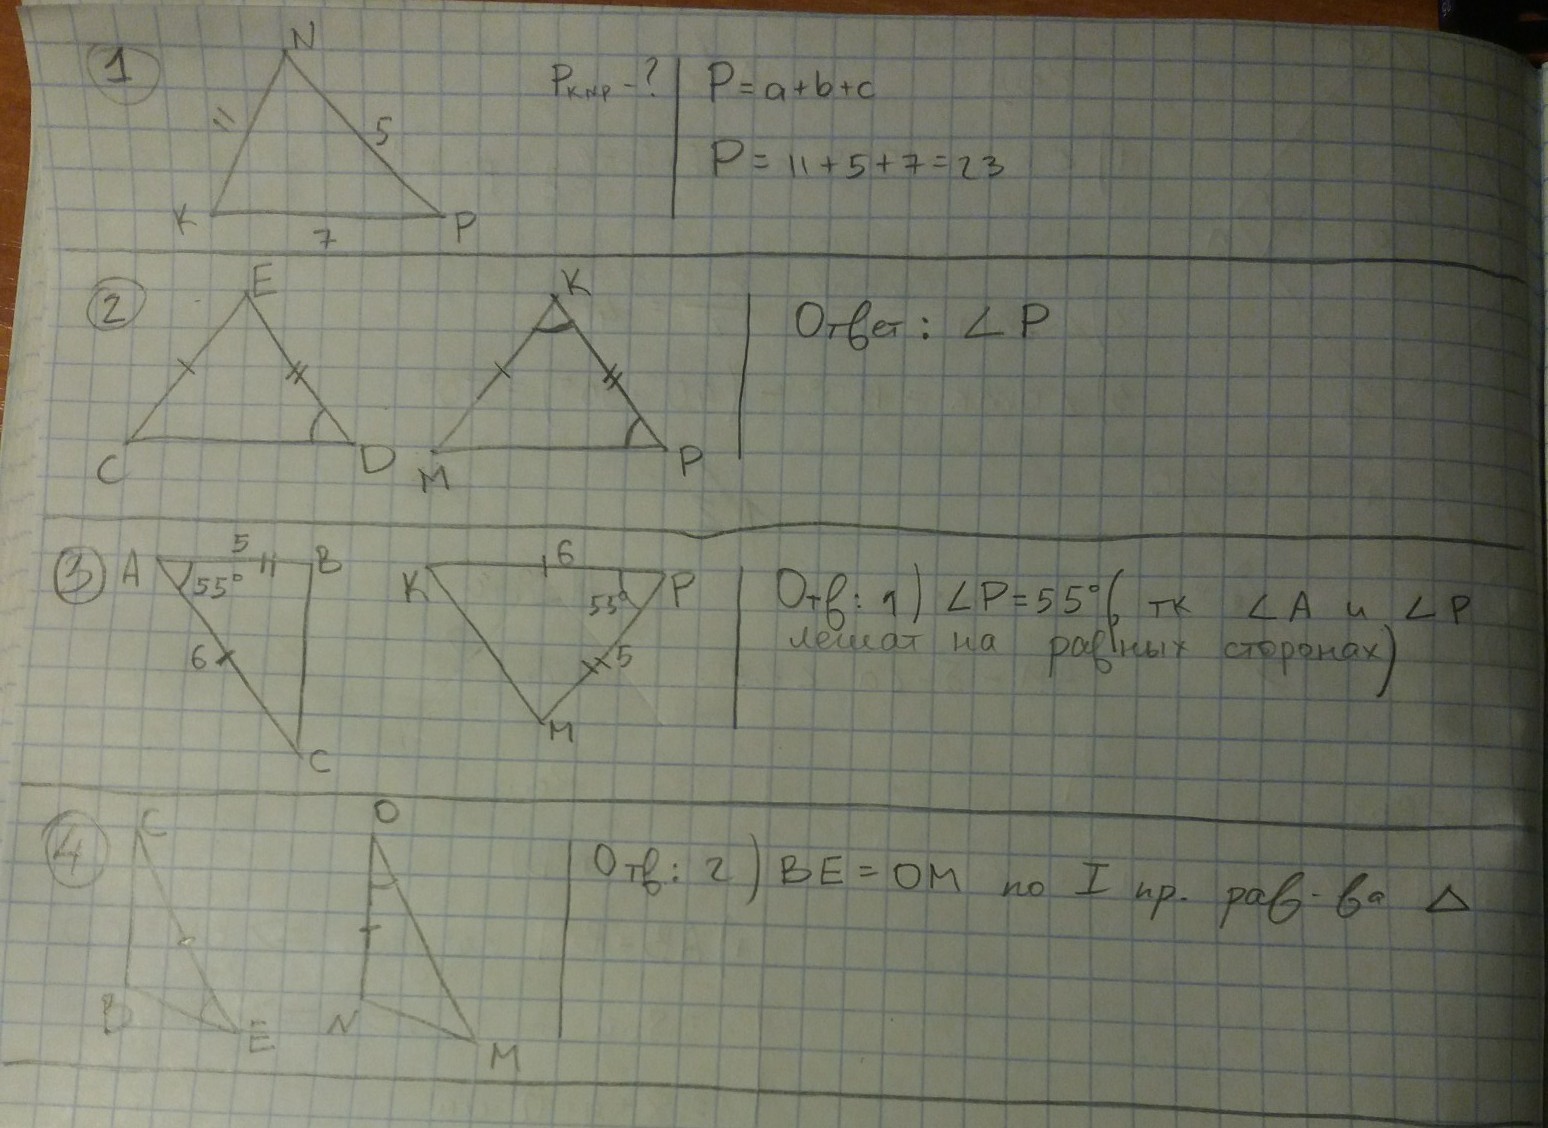 1
N
11
5
K
7
P
P KNP - ?
P = a+b+c
P = 11+5+7=23
2
E
C
D
K
M
P
Ответ: ∠P
3
A
5
B
55°
6
C
K
6
P
55°
5
M
Отв: 1) ∠P=55°( тк ∠A и ∠P
лежат на равных сторонах)
4
C
B
E
O
N
M
Отв: 2) BE = OM по I пр. рав-ва △